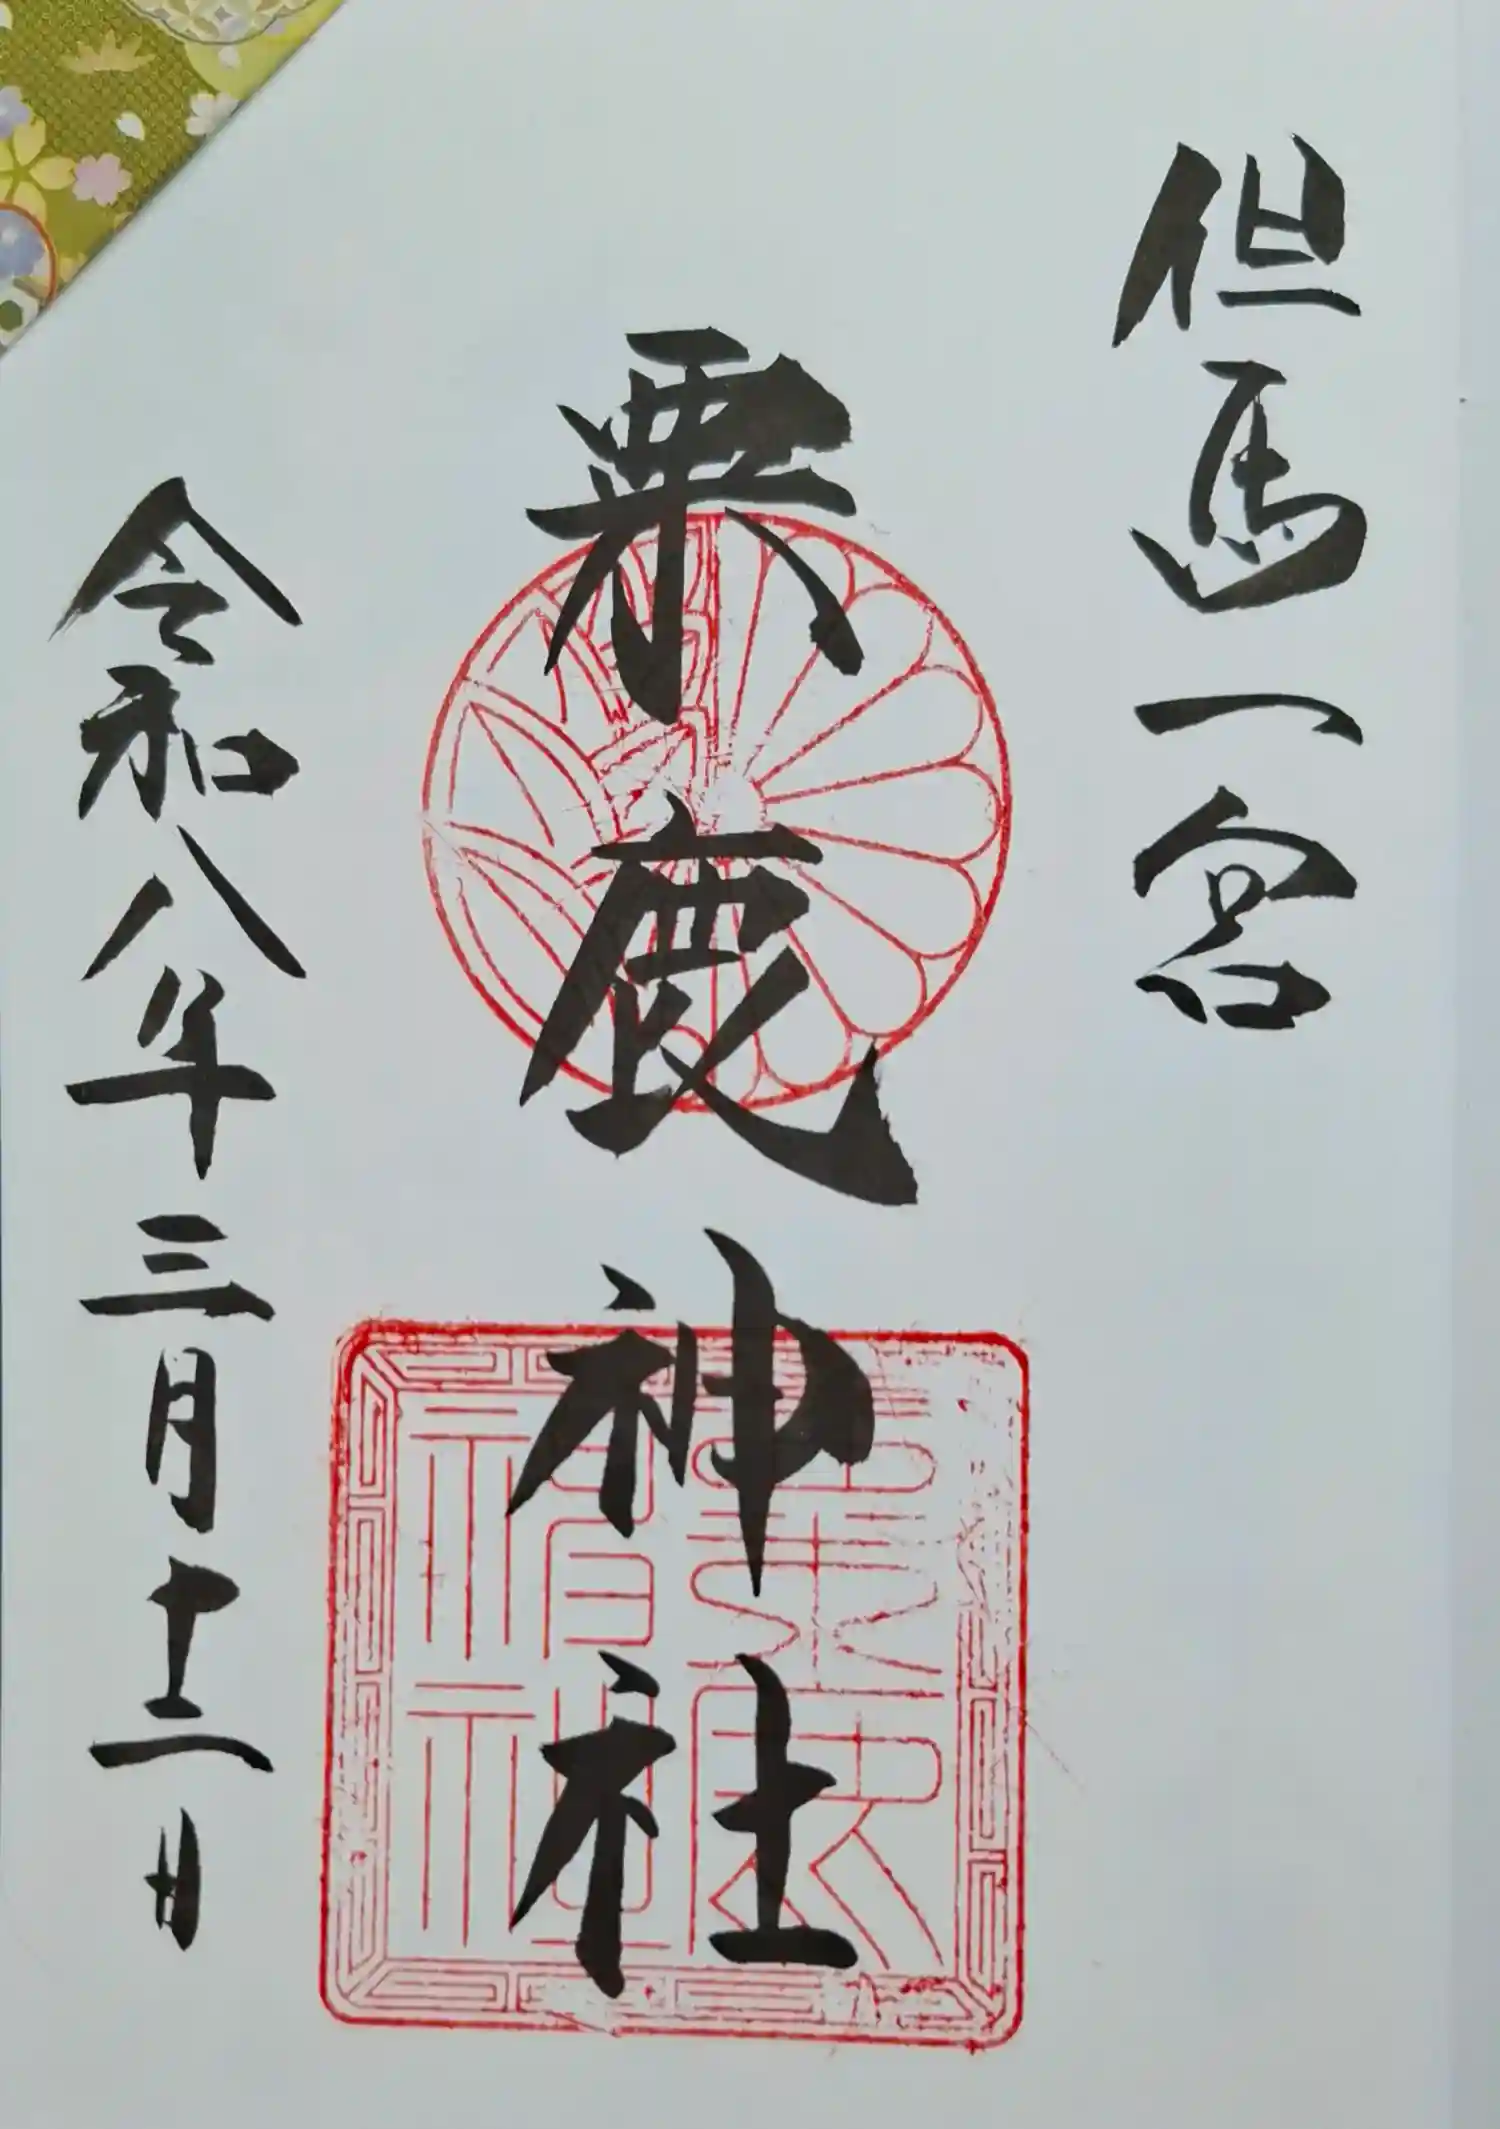 但馬一宮
粟鹿神社
令和八年三月十二日